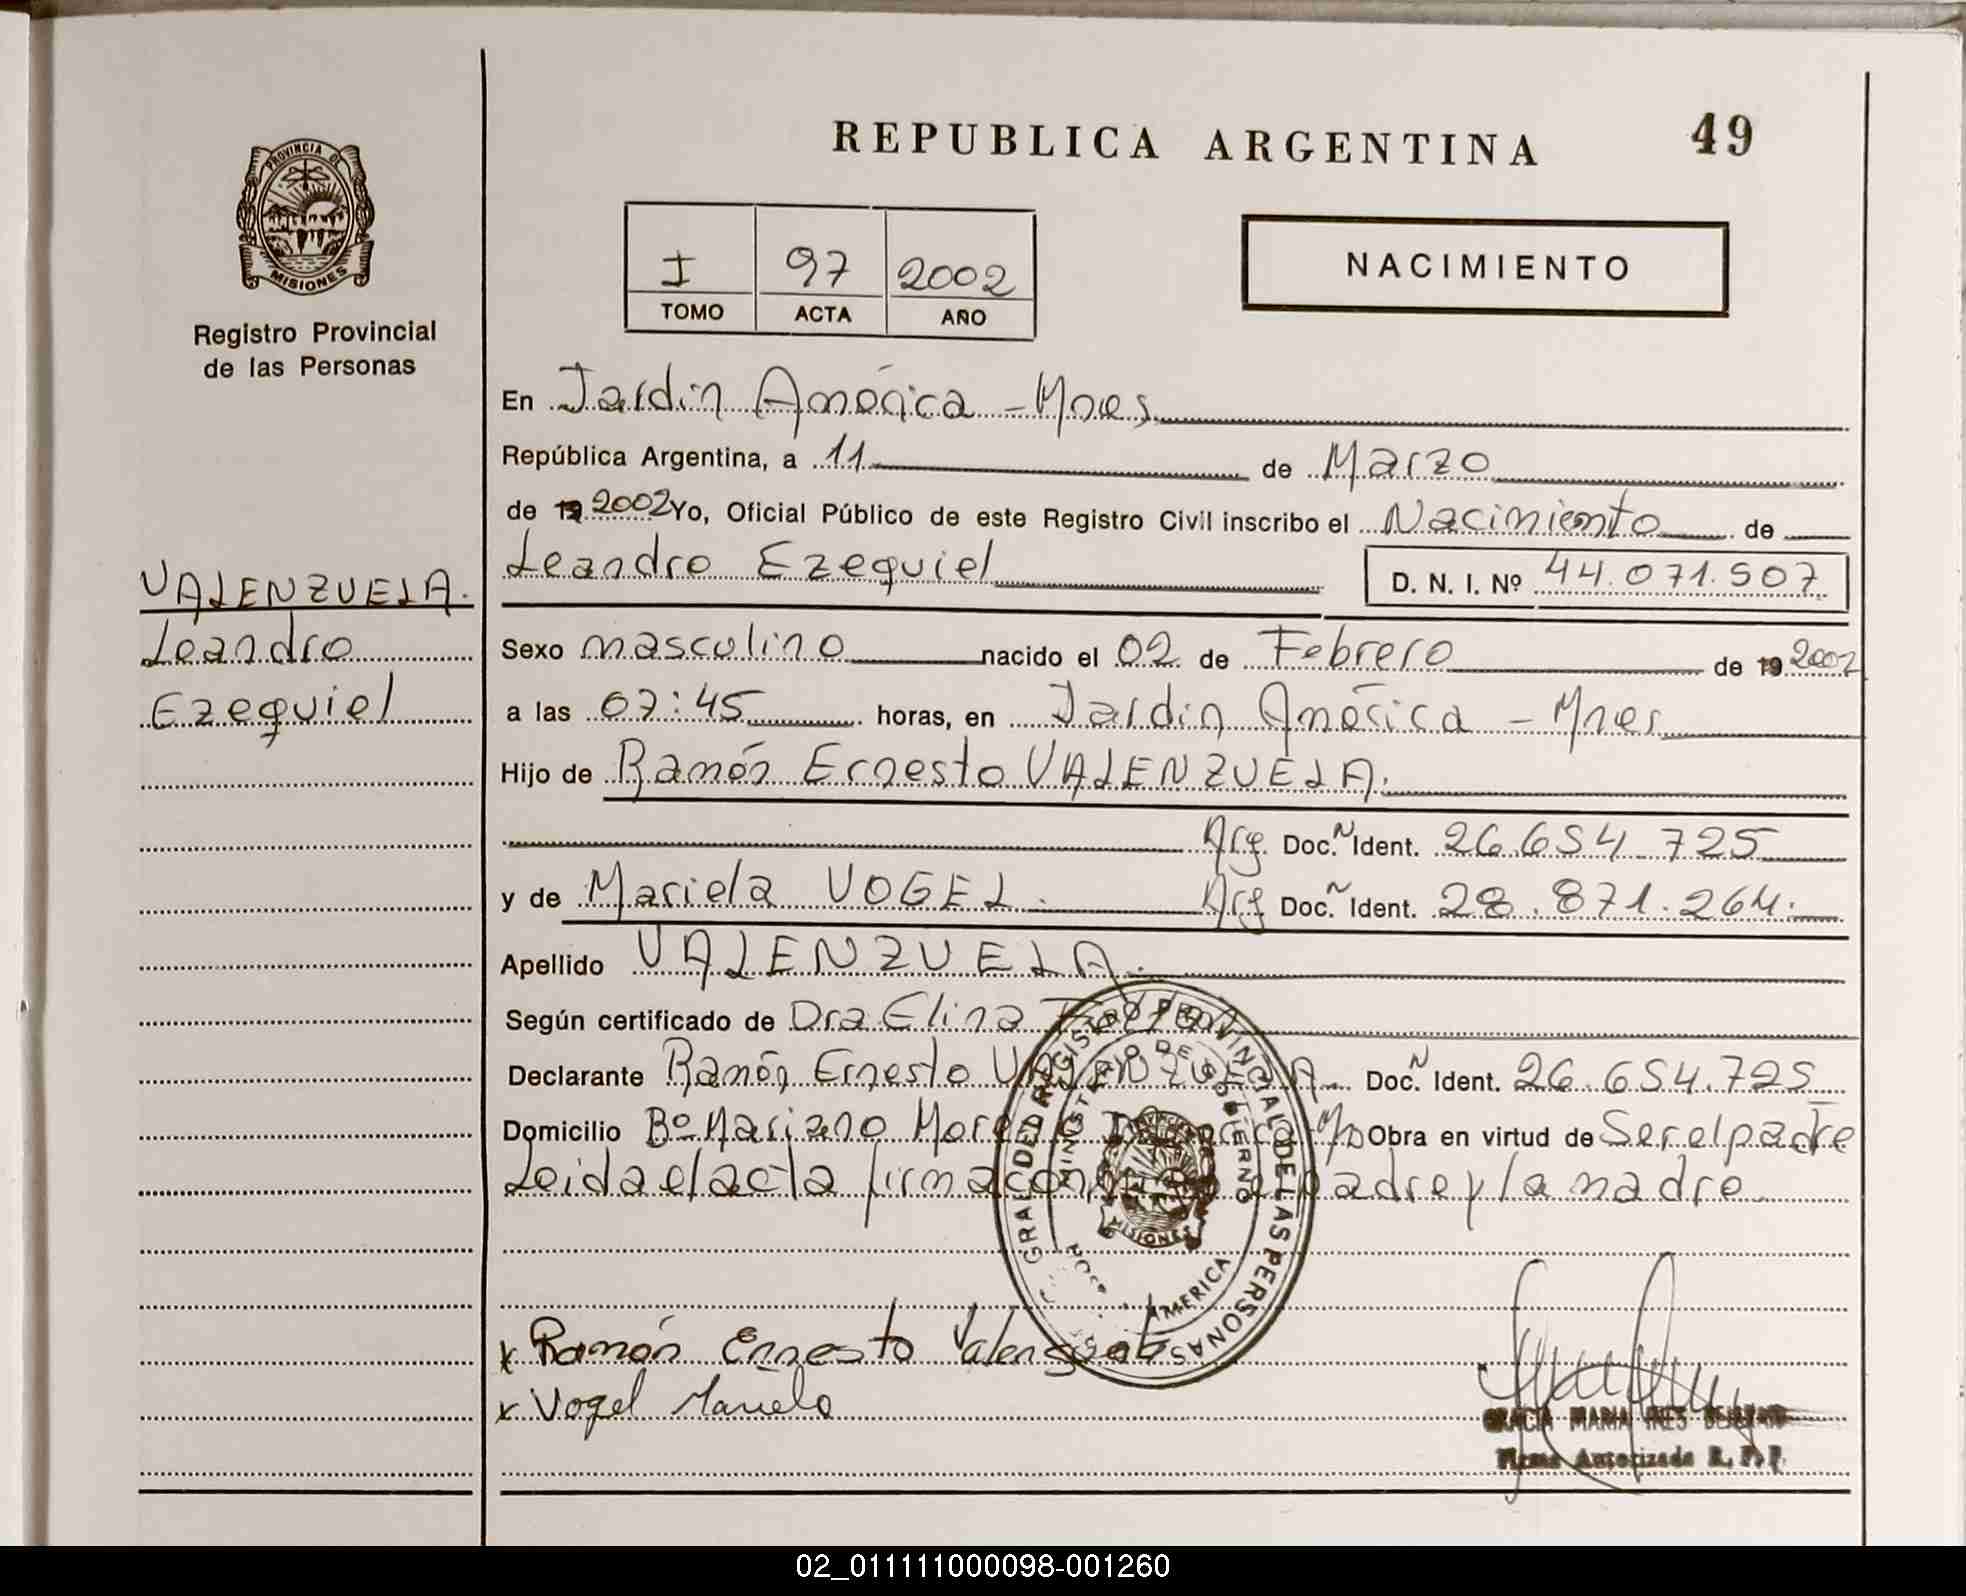 REPUBLICA ARGENTINA
49
PROVINCIA DE
MISIONES
Registro Provincial
de las Personas
I 97 2002
TOMO ACTA AÑO
NACIMIENTO
En Jardin América - Mnes
República Argentina, a 11 de Marzo
de 19 2002 Yo, Oficial Público de este Registro Civil inscribo el Nacimiento de
Leandro Ezequiel D. N. I. Nº 44.071.507
VALENZUELA.
Leandro
Ezequiel
Sexo masculino nacido el 02 de Febrero de 19 2002
a las 07:45 horas, en Jardin América - Mnes
Hijo de Ramón Ernesto VALENZUELA.
Arg. Doc. N Ident. 26.654.725
y de Mariela VOGEL. Arg Doc. N Ident. 28.871.264.
Apellido VALENZUELA.
Según certificado de Dra Elina
Declarante Ramón Ernesto VALENZUELA. Doc. N Ident. 26.654.725
Domicilio Bº Mariano Moreno Obra en virtud de Ser el padre
Leida el acta firma con padre y la madre
GRAL DEL REGISTRO PROVINCIAL DE LAS PERSONAS
MINISTERIO DE GOBIERNO
MISIONES
AMERICA
x Ramón Ernesto Valenzuela
x Vogel Mariela
GRACIA MARIA INES
Firma Autorizada R. P. P.
02_011111000098-001260